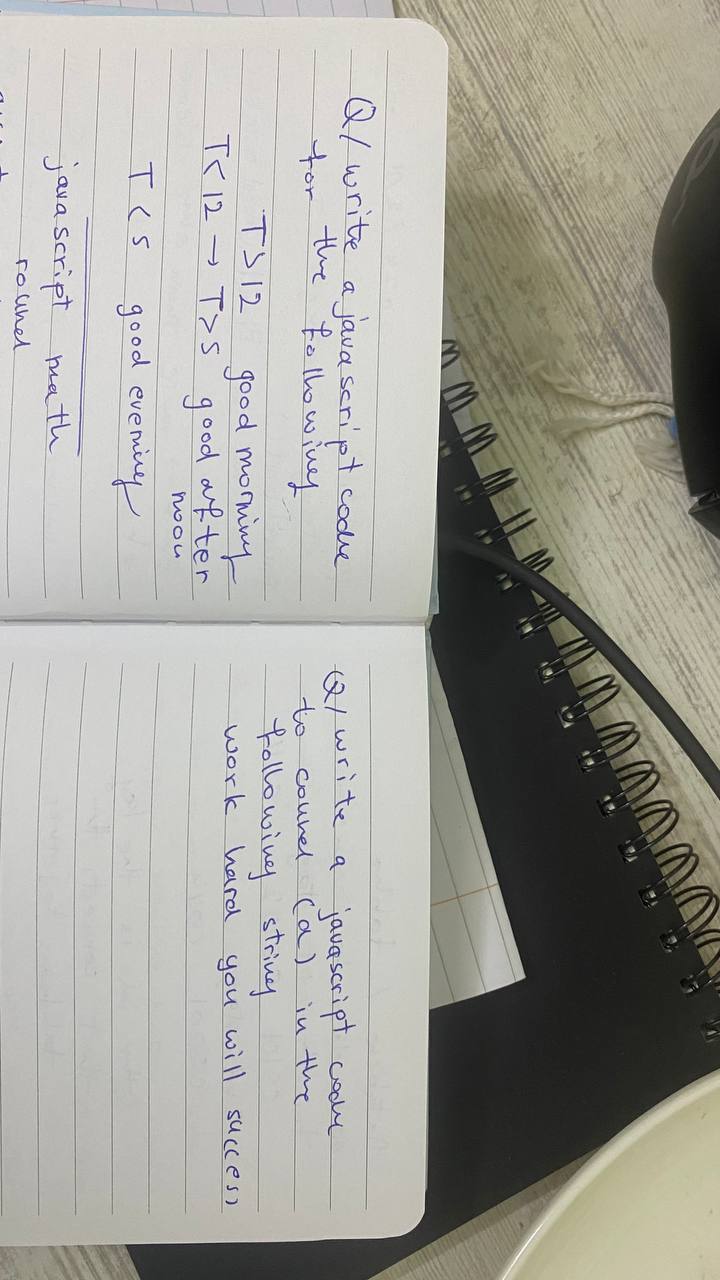 Q/ write a javascript code
for the following
T>12 good morning
T<12 → T>5 good after
noon
T<5 good evening
javascript math
round
Q/ write a javascript code
to count (a) in the
following string
work hard you will success